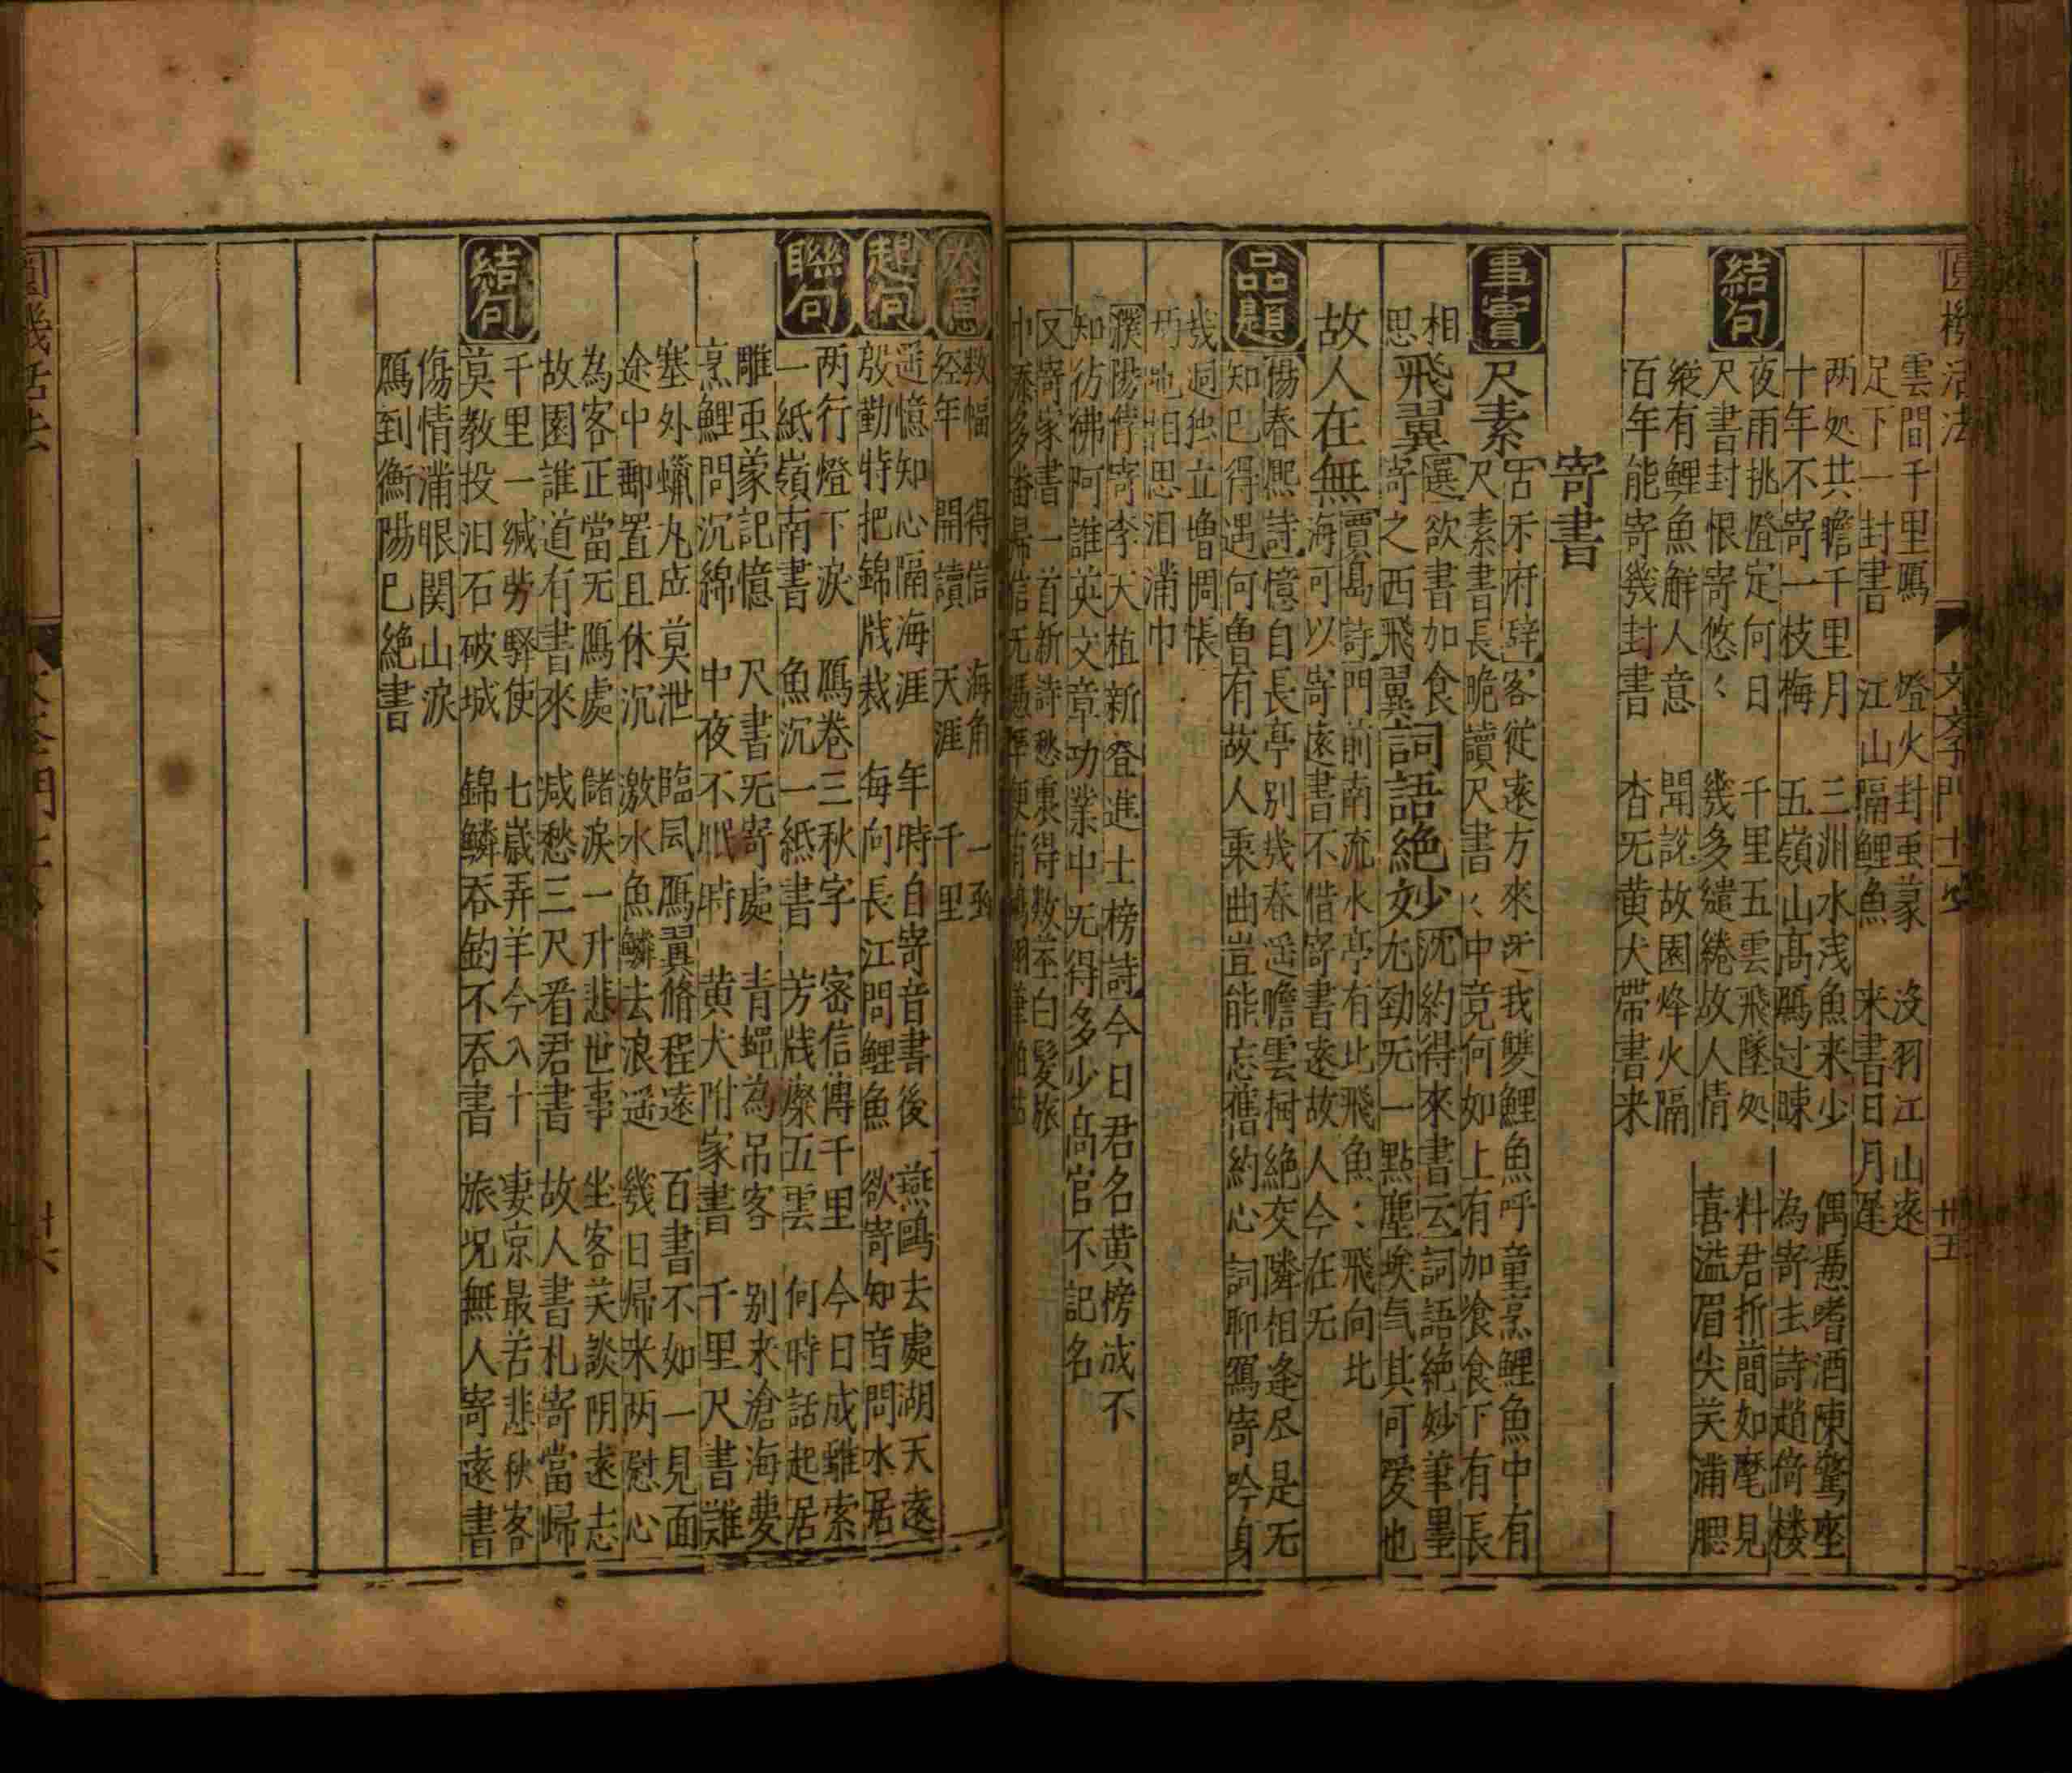 圓機活法
文学門十一
卄五
雲間千里鴈　燈火封䖝篆　沒羽江山遠
足下一封書　江山隔鯉魚　来書日月遲
两处共瞻千里月　三洲水浅魚来少　偶慿嗜酒陳驚座
十年不寄一枝梅　五嶺山髙鴈过踈　為寄主詩趙倚楼
夜雨挑燈定何日　千里五雲飛墜处　料君折簡如麾見
結句
尺書封恨寄悠〻　幾多繾綣故人情　喜溢眉尖关滿腮
縱有鯉魚觧人意　聞説故園烽火隔
百年能寄幾封書　杳旡黄犬帶書来
寄書
事實
尺素
客従遠方來　我雙鯉魚呼童烹鯉魚中有
尺素書長跪讀尺書〻中竟何如上有加飡食下有長
相
選欲書加食
沈約得來書云詞語絶妙筆墨
思飛翼
寄之西飛翼
詞語絶妙
尢勁旡一點塵埃気其可爱也
故人在無
賈島詩門前南流水亭有北飛魚〻飛向北
海可以寄遠書不借寄書遠故人今在旡
品題
楊春熙詩憶自長亭别幾春遥瞻雲树絶交隣相逢尽是旡
知巳得遇何魯有故人乘曲豈能忘舊約心詞聊寫寄吟身
幾迴独立増惆悵
思泪滿巾
濮陽傳寄李天植新登進士榜詩今日君名黄榜成不
知彷彿阿誰英文章功業中旡得多少髙官不記名
又寄家書一首新詩愁裏得数莖白髪旅
大意
数幅　得信　海角　一
経年　開讀　天涯　千里
起句
遥憶知心隔海涯　年時自寄音書後　燕鴎去處湖天遠
殷勤特把錦牋裁　每向長江問鯉魚　欲寄知音問水居
聯句
两行燈下淚　鴈巻三秋字　宻信傳千里　今日成離索
一紙嶺南書　魚沉一紙書　芳牋燦五雲　何時話起居
雕䖝蒙記憶　尺書旡寄處　青蝿為吊客　别来滄海夢
烹鯉問沉綿　中夜不眠時　黄犬附家書　千里尺書難
塞外蠟丸応莫泄　臨風鴈翼脩程遠　百書不如一見面
途中郵置且休沉　激水魚鱗去浪遥　幾日帰来两慰心
為客正當无鴈處　儲淚一升悲世事　坐客关談阴遠志
故園誰道有書來　减愁三尺看君書　故人書札寄當歸
結句
千里一缄劳驛使　七歲弄羊今入十　妻京最苦悲秋客
莫教投汨石破城　錦鱗吞釣不吞書　旅况無人寄遠書
傷情滿眼関山淚
鴈到衡陽巳絶書
圓機活法
卄六